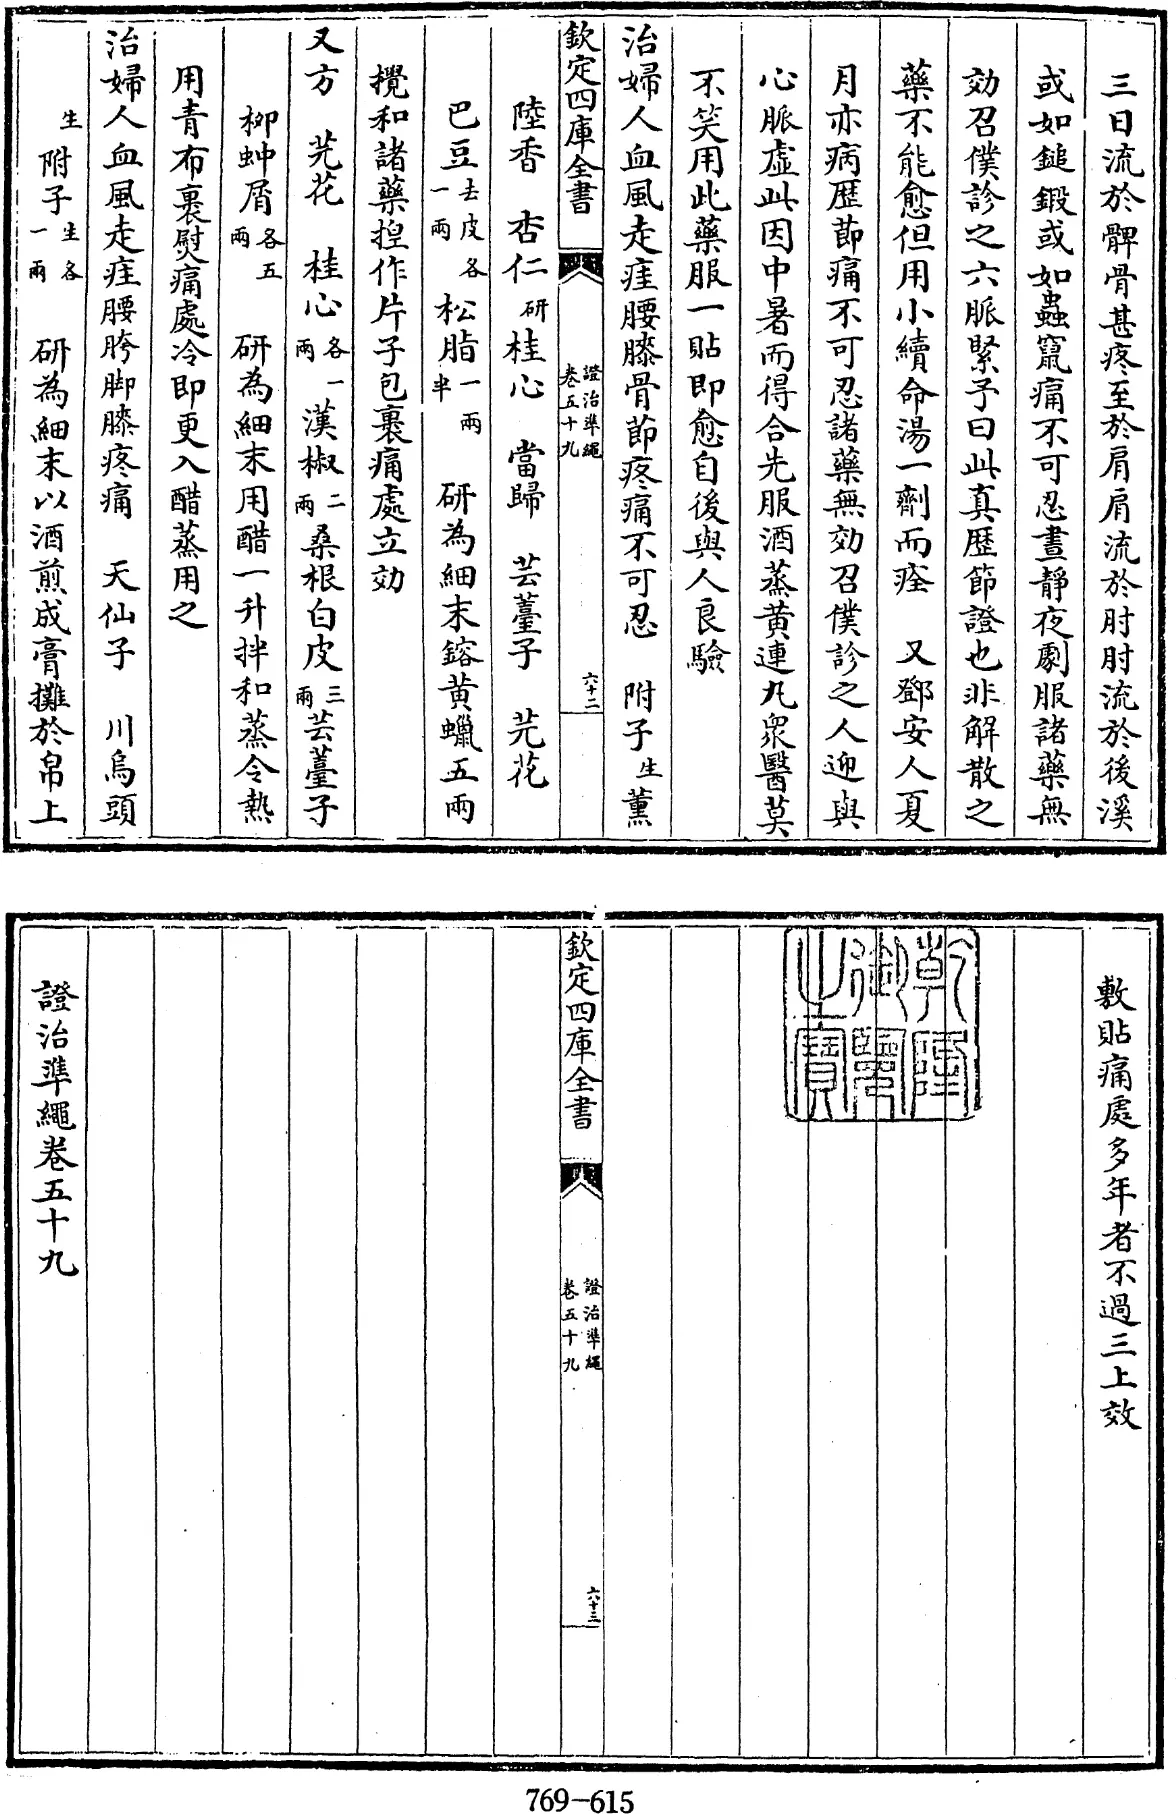 三日流於髀骨甚疼至於肩肩流於肘肘流於後溪
或如鎚鍛或如蟲竄痛不可忍晝靜夜劇服諸藥無
効召僕診之六脈緊予曰此真歴節證也非解散之
藥不能愈但用小續命湯一劑而痊　又鄧安人夏
月亦病歴節痛不可忍諸藥無効召僕診之人迎與
心脈虛此因中暑而得合先服酒蒸黄連丸衆醫莫
不笑用此藥服一貼即愈自後與人良驗
治婦人血風走疰腰膝骨節疼痛不可忍　附子生薰
欽定四庫全書
證治準繩
卷五十九
六十二
陸香　杏仁研桂心　當歸　芸薹子　芫花
巴豆去皮各一兩松脂一兩半　研為細末鎔黄蠟五兩
攪和諸藥揑作片子包裹痛處立効
又方　芫花　桂心各一兩漢椒二兩桑根白皮三兩芸薹子
柳蚛屑各五兩　研為細末用醋一升拌和蒸令熱
用青布裹熨痛處冷即更入醋蒸用之
治婦人血風走疰腰胯脚膝疼痛　天仙子　川烏頭
生附子生各一兩　研為細末以酒煎成膏攤於帛上
敷貼痛處多年者不過三上效
乾隆御覽之寶
欽定四庫全書
證治準繩
卷五十九
六十三
證治準繩卷五十九
769-615